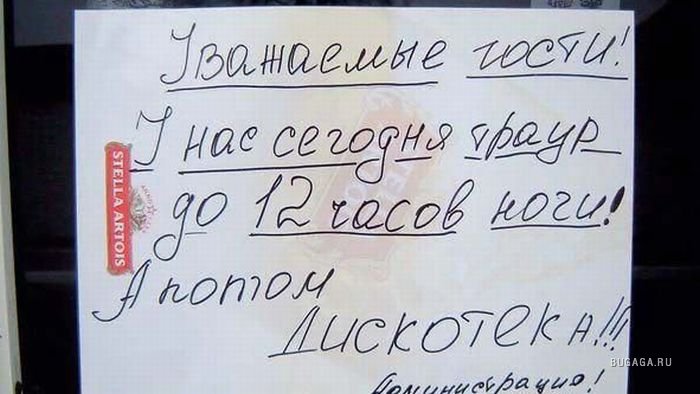 Уважаемые гости!
У нас сегодня траур
до 12 часов ночи!
А потом
ДИСКОТЕКА!!!
Администрация!
STELLA ARTOIS
BUGAGA.RU